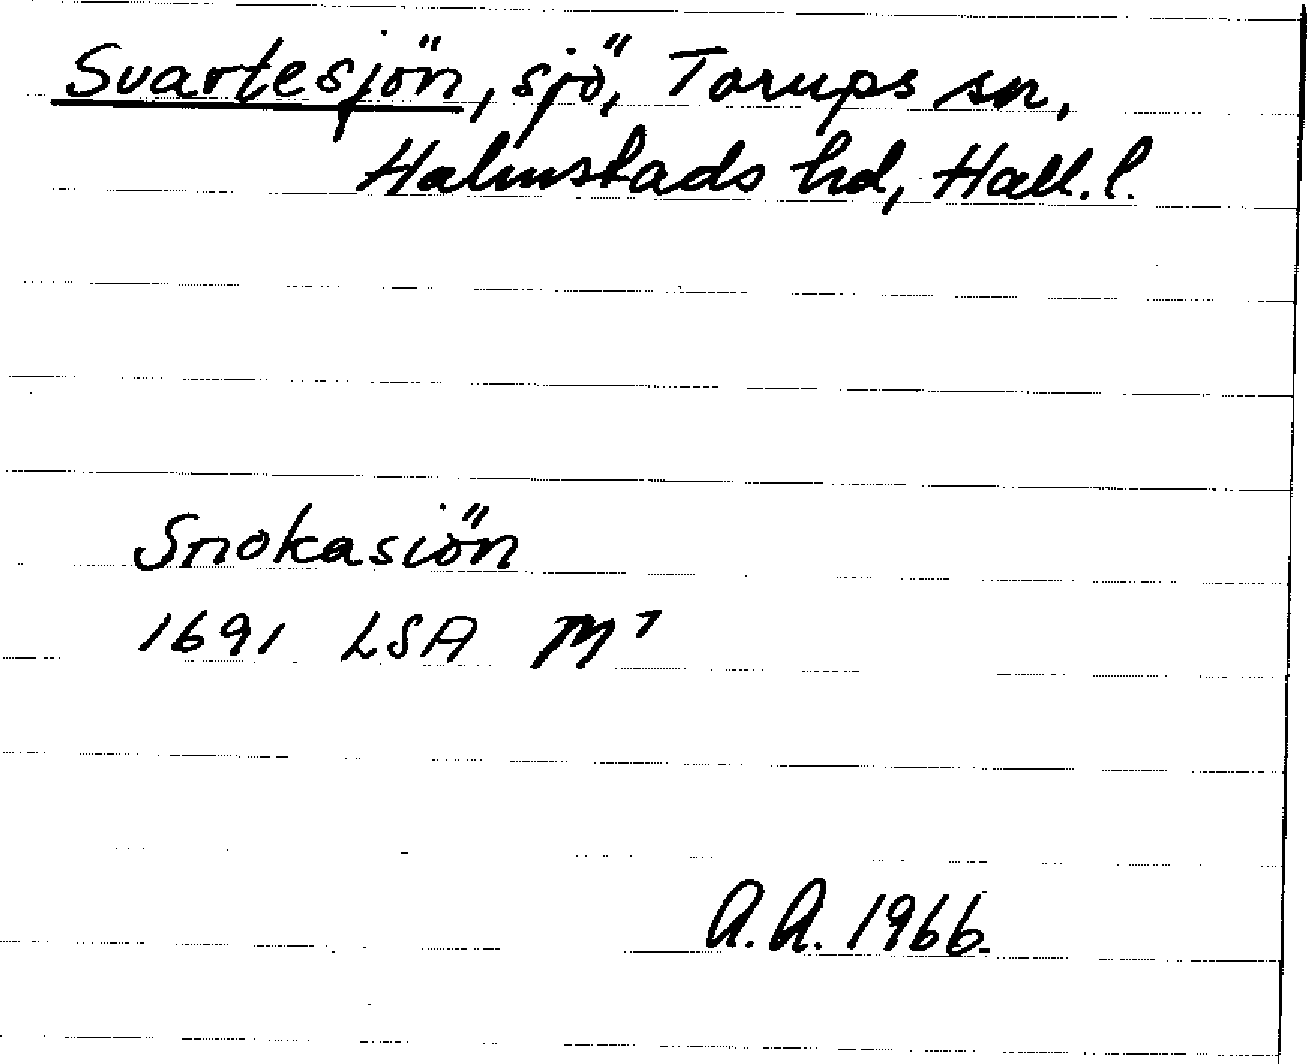 Svartesjön, sjö, Torups sn,
Halmstads hd, Hall. l.
Snokasiön
1691 LSA M⁷
A.A. 1966.